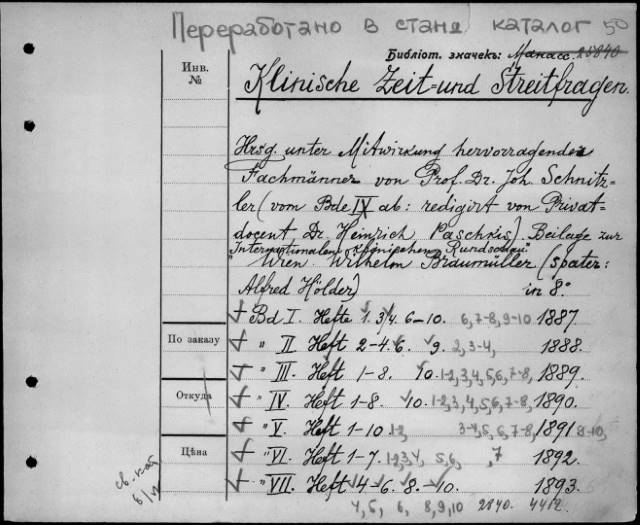 Переработано в станд каталог 50
Библіот. значекъ: Манасс. 25840
Инв.
№
Klinische Zeit- und Streitfragen.
Hrsg. unter Mitwirkung hervorragender
Fachmänner von Prof. Dr. Joh. Schnitz-
ler (vom Bde IX ab: redigirt von Privat-
docent Dr. Heinrich Paschkis). Beilage zur
"Internationalen klinischen Rundschau."
Wien. Wilhelm Braumüller (später:
Alfred Hölder) in 8.°
+ Bd I. Hefte 1. 3/4. 6-10. 6, 7-8, 9-10 1887.
По заказу
+ " II Heft 2-4. 6. 9. 2, 3-4, 1888.
+ " III. Heft 1-8. 10. 1-2, 3, 4, 5, 6, 7-8, 1889.
Откуда
+ " IV. Heft 1-8. 10. 1-2, 3, 4, 5, 6, 7-8, 1890.
+ " V. Heft 1-10. 1-2, 3-4, 5, 6, 7-8, 1891 8-10,
Цѣна
+ " VI. Heft 1-7. 1-2, 3, 4, 5, 6, 7 1892.
+ " VII. Heft 4-6. 8-10. 1893.
4, 5, 6, 8, 9, 10 2840. 4412.
св. кат
6/IV